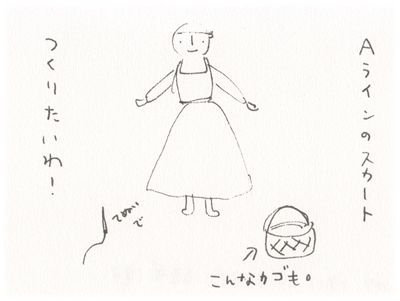 Aラインのスカート
つくりたいわ！
てぬいで
こんなカゴも。